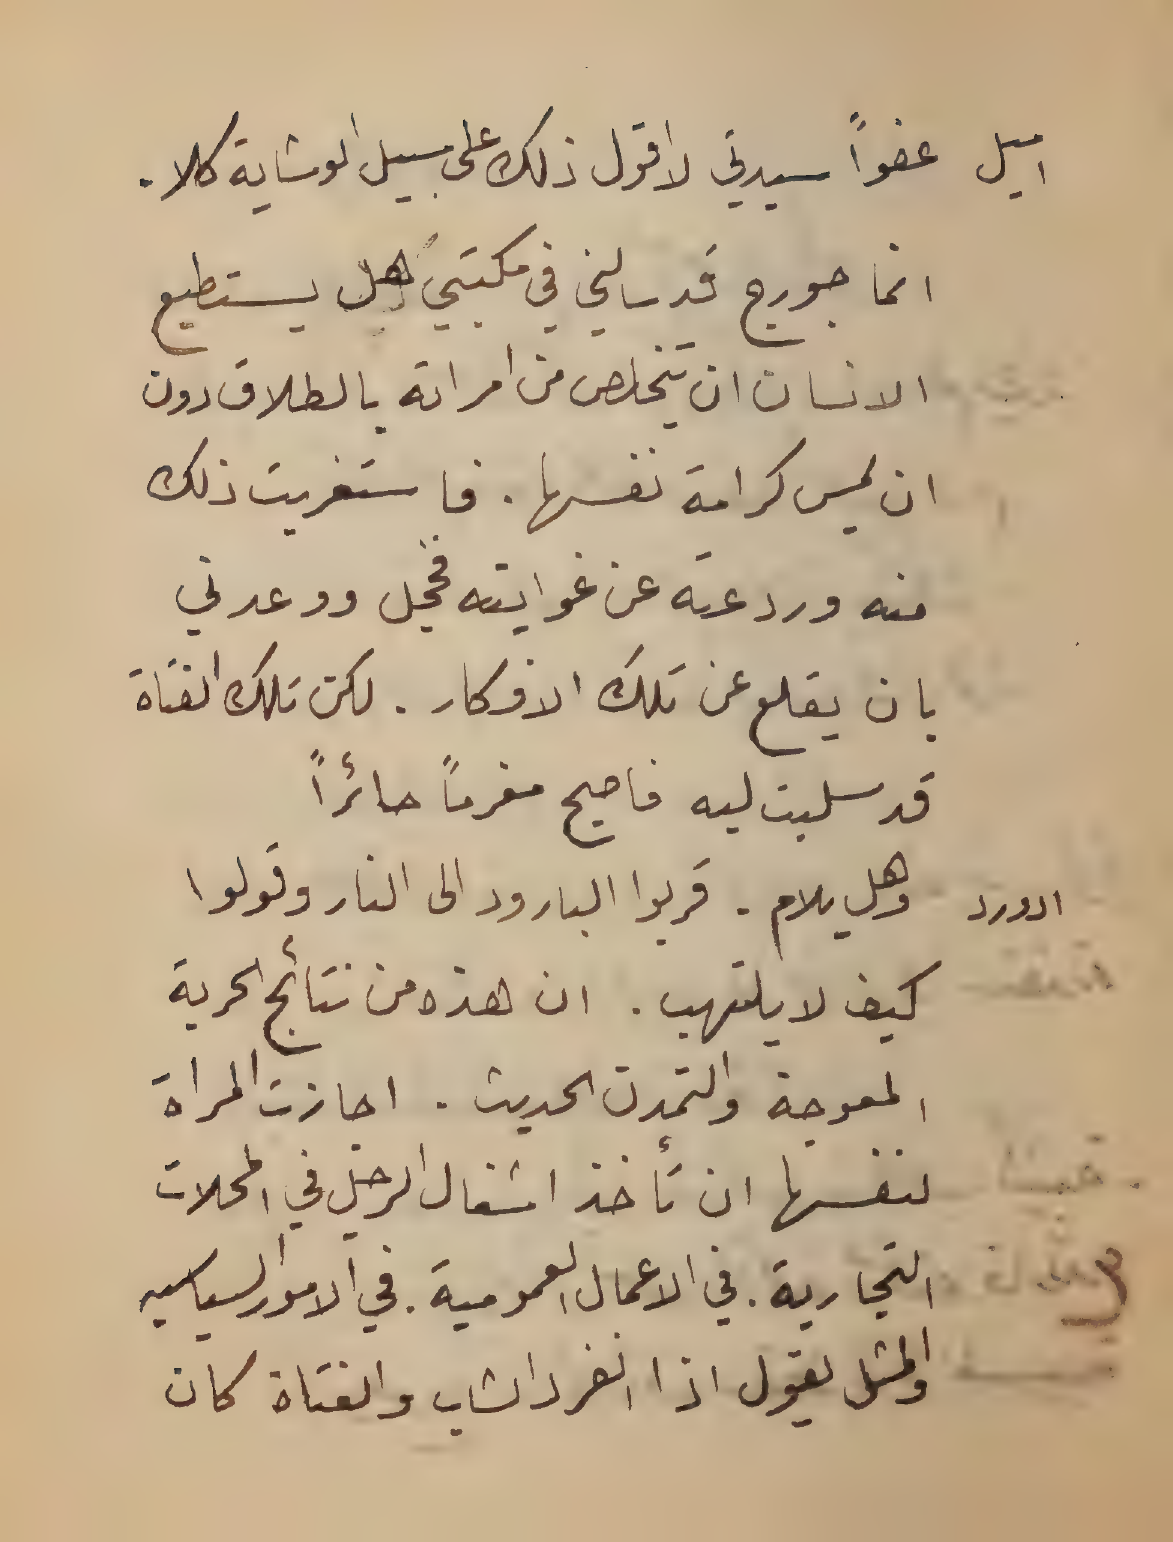 اميل عفواً سيدتي لا اقول ذلك على سبيل الوشاية كلا.
انما جورج قد سالني في مكتبتي هل يستطيع
الانسان ان يتخلص من امراته بالطلاق دون
ان يمس كرامة نفسها . فاستغربت ذلك
منه وردعته عن غوايته فخجل ووعدني
بان يقلع عن تلك الافكار . لكن تلك الفتاة
قد سلبت لبه فاصبح مغرماً حائراً
ادورد وهل يلام . قربوا البارود الى النار وقولوا
كيف لا يلتهب . ان هذه من نتائج الحرية
المعوجة والتمدن الحديث . اجازت المراة
لنفسها ان تأخذ اشغال الرجل في المحلات
التجارية . في الاعمال العمومية . في الامور السياسيه
والمثل يقول اذا انفرد الشاب والفتاة كان